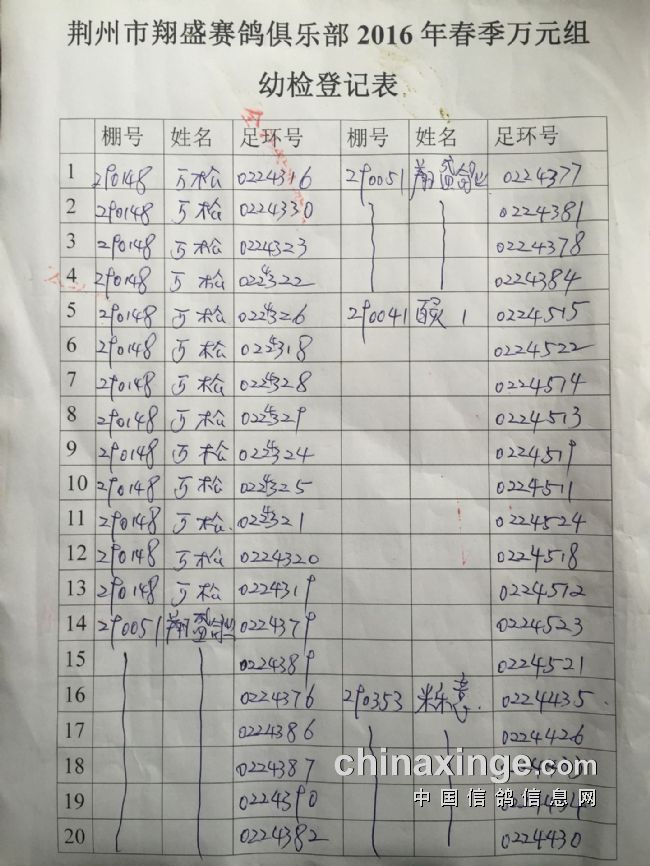 荆州市翔盛赛鸽俱乐部 2016 年春季万元组
幼检登记表
棚号 姓名 足环号 棚号 姓名 足环号
1 290148 万松 0224316 290051 翔盛鸽业 0224377
2 290148 万松 0224330 0224381
3 290148 万松 0224323 0224378
4 290148 万松 0224322 0224384
5 290148 万松 0224326 290041 0224515
6 290148 万松 0224318 0224522
7 290148 万松 0224328 0224514
8 290148 万松 0224329 0224513
9 290148 万松 0224324 0224519
10 290148 万松 0224325 0224511
11 290148 万松 0224321 0224524
12 290148 万松 0224320 0224518
13 290148 万松 0224319 0224512
14 290051 翔盛鸽业 0224379 0224523
15 0224389 0224521
16 0224376 290353 0224435
17 0224386 0224426
18 0224387
19 0224390
20 0224382 0224430
chinaxinge.com
中国信鸽信息网